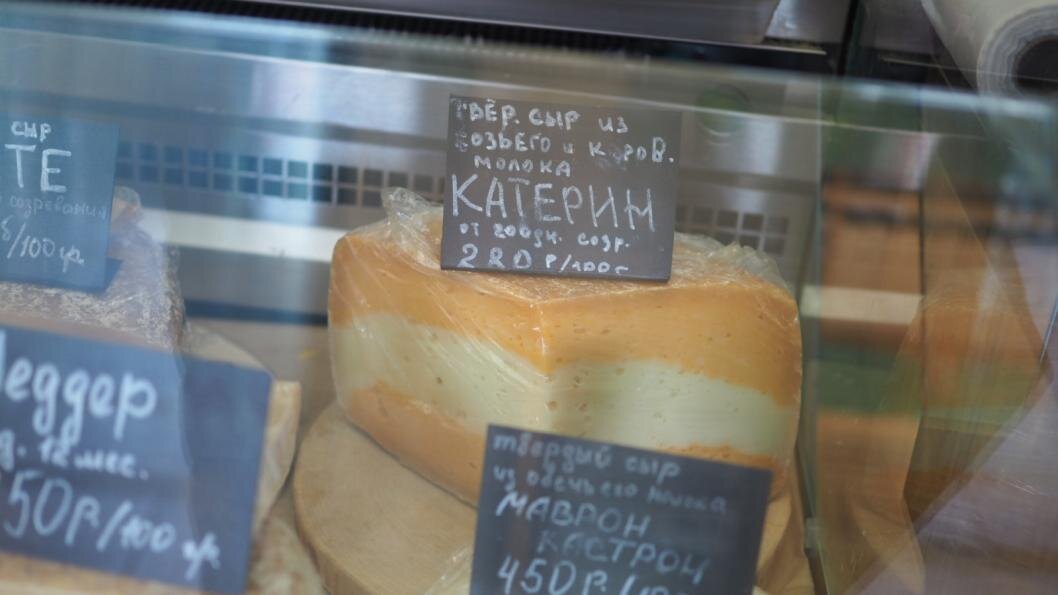 сыр
ТЕ
созревания
/100 гр.
ТВЁР. СЫР ИЗ
КОЗЬЕГО И КОРОВ.
МОЛОКА
КАТЕРИН
от 200дн. созр.
280 Р/100г
Чеддер
12 мес.
50Р/100 гр.
твердый сыр
из овечьего молока
МАВРОН
КАСТРОН
450Р/